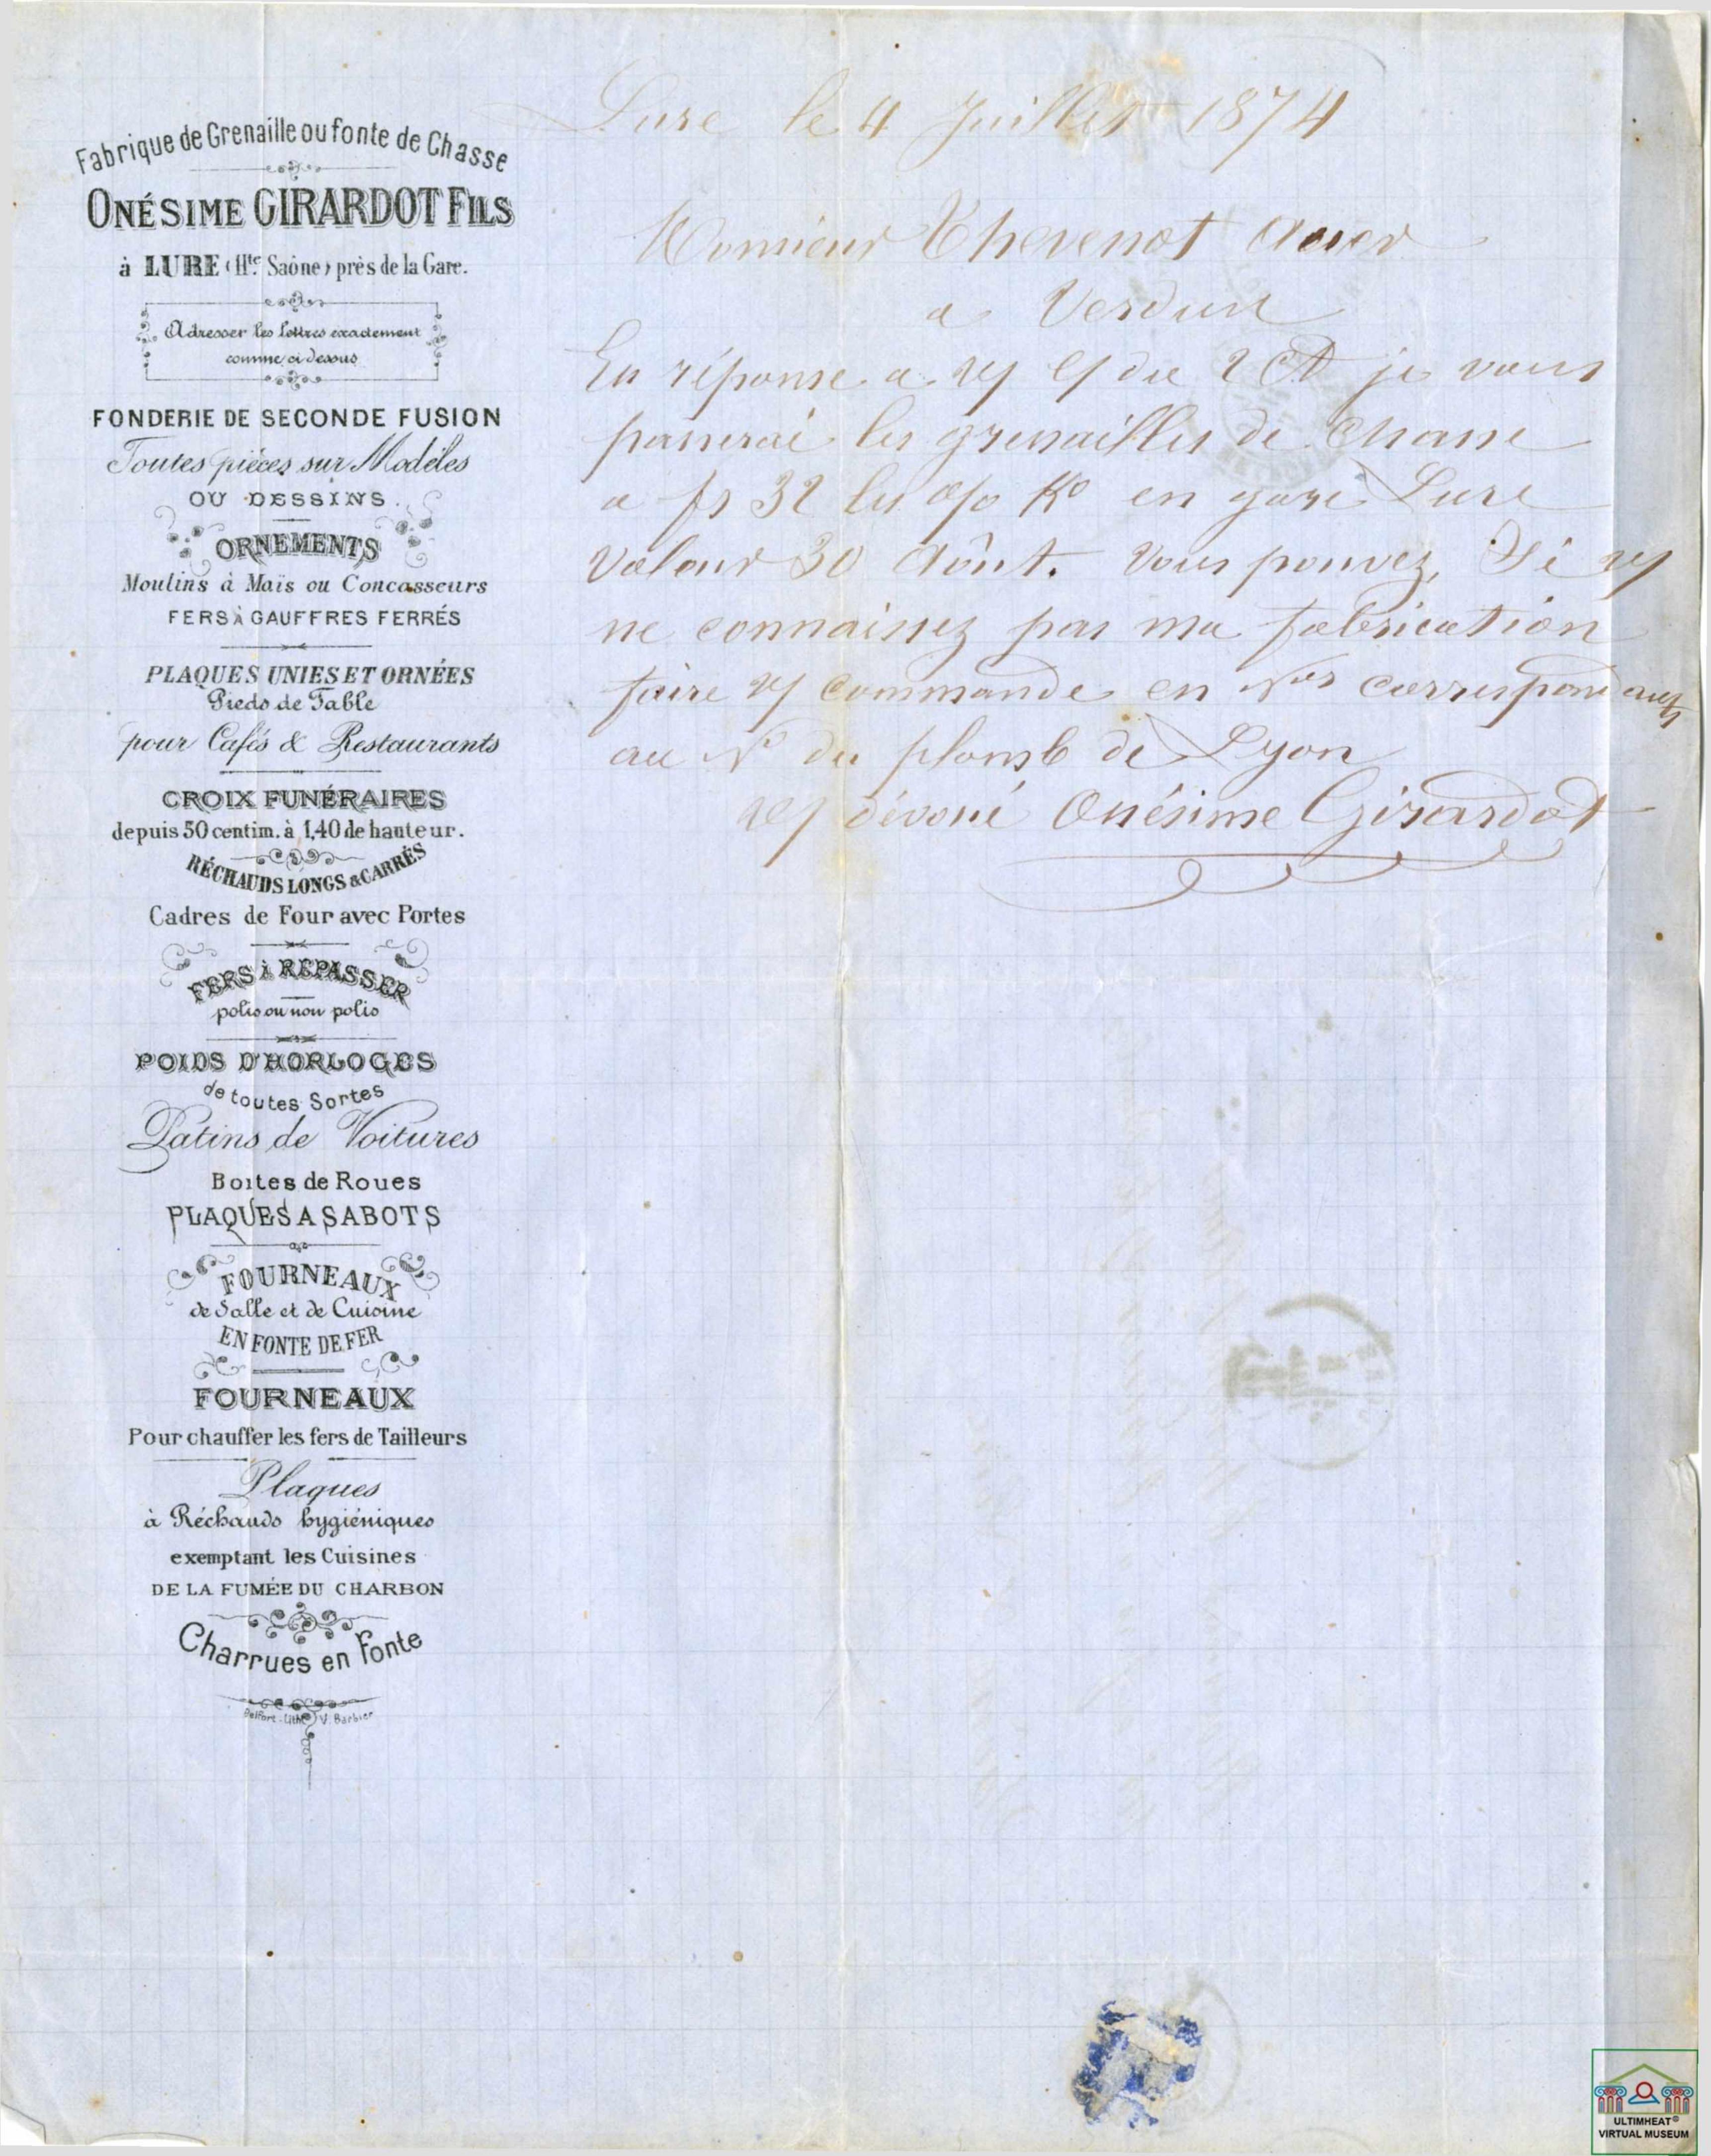 Fabrique de Grenaille ou fonte de Chasse
ONÉSIME GIRARDOT FILS
à LURE (Hte Saône) près de la Gare.
Adresser les lettres exactement
comme ci dessus
FONDERIE DE SECONDE FUSION
Toutes pièces sur Modèles
OU DESSINS.
ORNEMENTS
Moulins à Maïs ou Concasseurs
FERS À GAUFFRES FERRÉS
PLAQUES UNIES ET ORNÉES
Pieds de Table
pour Cafés & Restaurants
CROIX FUNÉRAIRES
depuis 50 centim. à 1,40 de hauteur.
RÉCHAUDS LONGS & CARRÉS
Cadres de Four avec Portes
FERS À REPASSER
polis ou non polis
POIDS D'HORLOGES
de toutes Sortes
Patins de Voitures
Boites de Roues
PLAQUES A SABOTS
FOURNEAUX
de Salle et de Cuisine
EN FONTE DE FER
FOURNEAUX
Pour chauffer les fers de Tailleurs
Plaques
à Réchauds hygiéniques
exemptant les Cuisines
DE LA FUMÉE DU CHARBON
Charrues en Fonte
Belfort-Lith. V. Barbier
Lure le 4 Juillet 1874
Monsieur Thevenot
a Verdun
En réponse a du 2 Ct je vous
passerai les grenailles de Chasse
a fs 32 les % Ko en gare Lure
Valeur 30 Août. Vous pouvez, Si
ne connaissez pas ma fabrication
faire commande en Nos correspondants
au No du plomb de Lyon
dévoué Onésime Girardot
ULTIMHEAT®
VIRTUAL MUSEUM